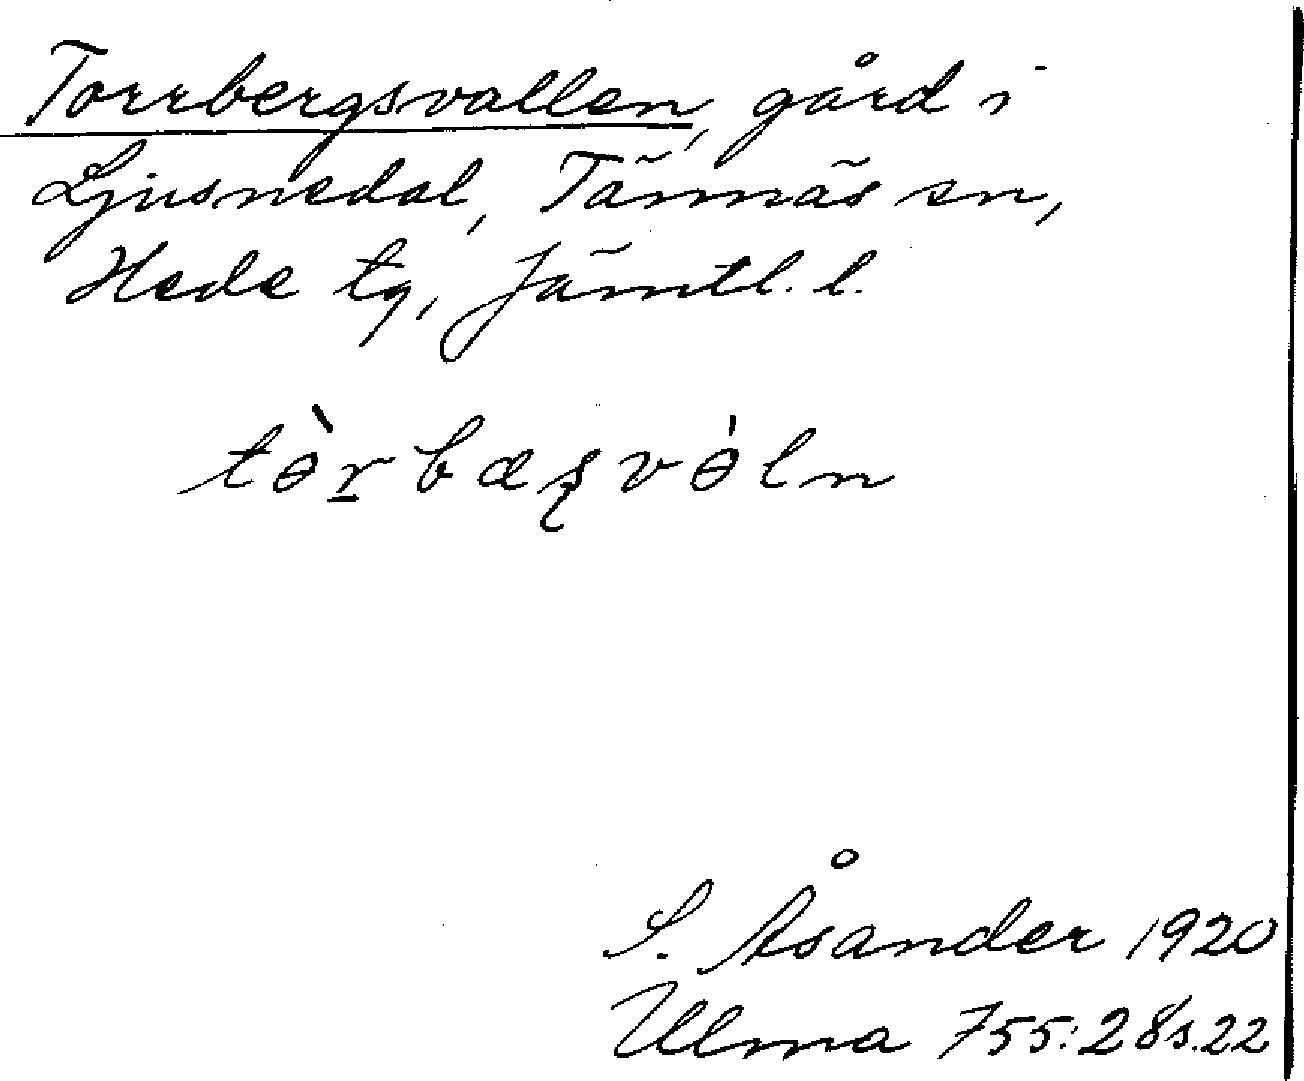 Torrbergsvallen, gård i
Ljusnedal, Tännäs sn,
Hede tg, Jämtl. l.
tɵ̀r̲bæʂvɵ̍ln
S. Åsander 1920
Ulma 755:28 s.22